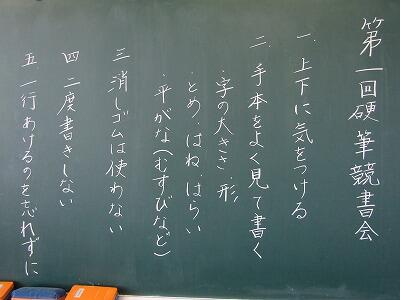 第一回硬筆競書会
一、上下に気をつける
二、手本をよく見て書く
・字の大きさ、形
・とめ、はね、はらい
・平がな(むすびなど)
三 消しゴムは使わない
四 二度書きしない
五 一行あけるのを忘れずに